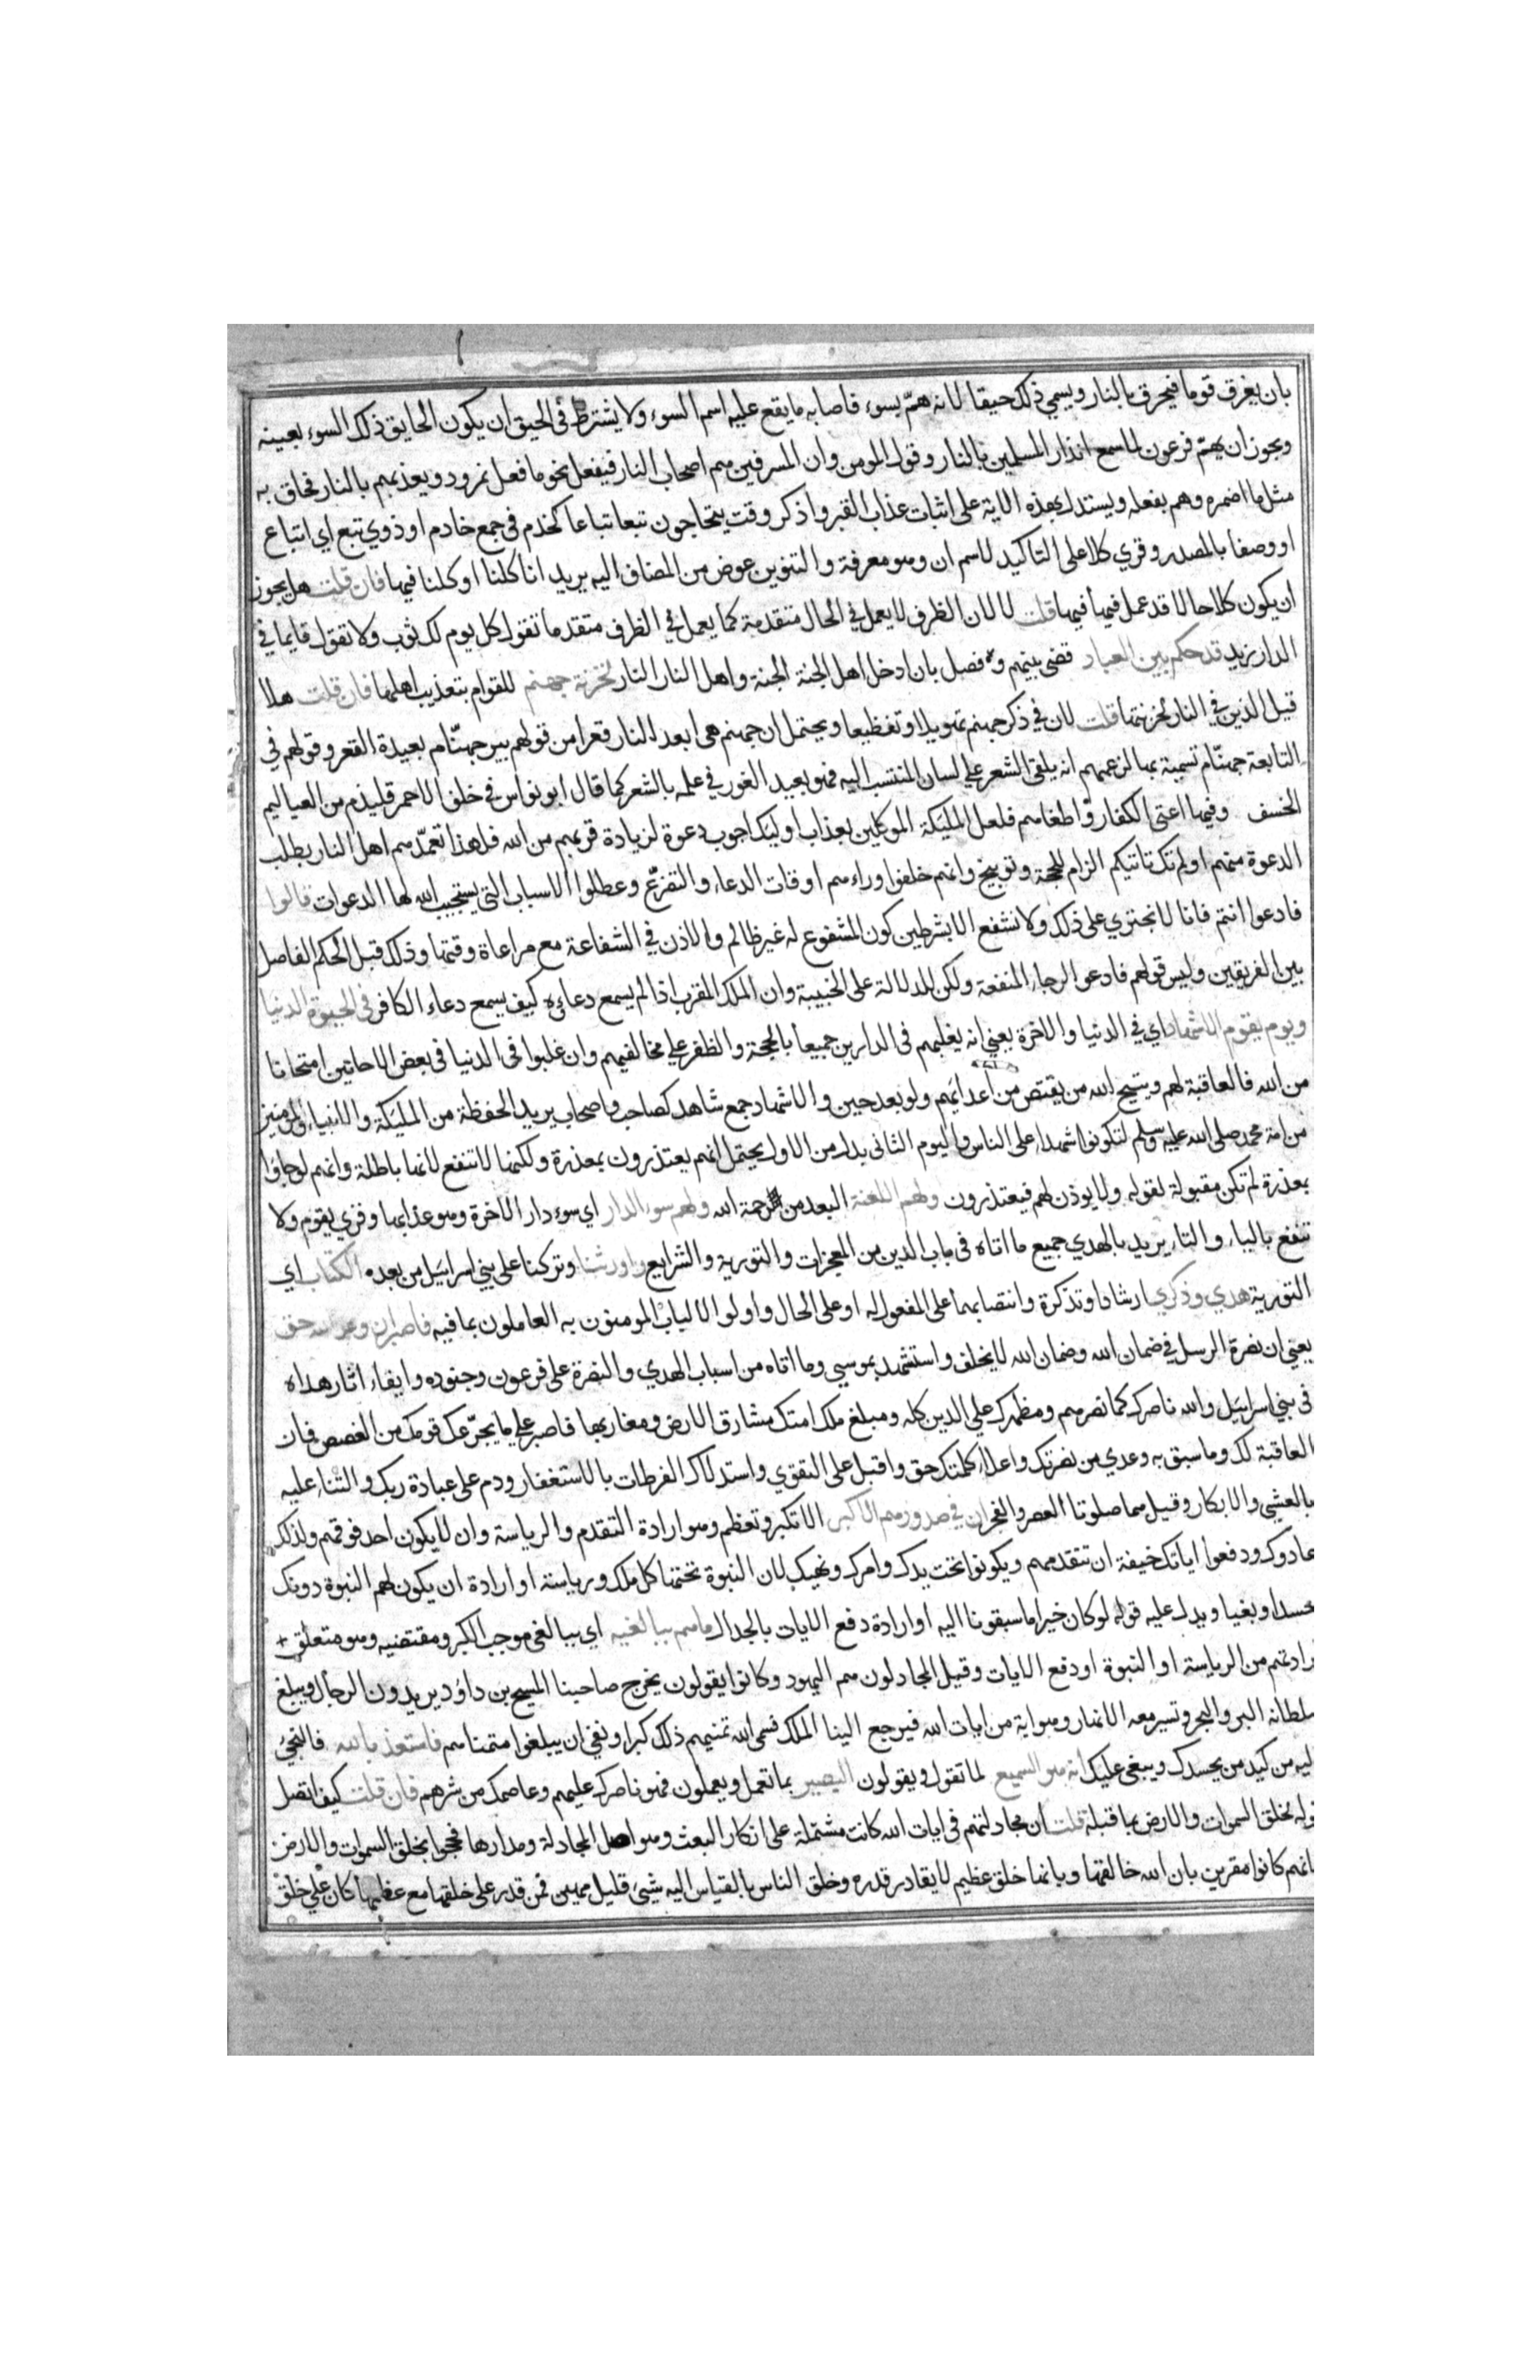 بان يغرق قوما فيحرق بالنار ويسمي ذلك حيقا لانه همّ بسوء فاصابه ما يقع عليه اسم السوء ولا يشترط في الحيق ان يكون الحايق ذلك السوء بعينه
ويجوز ان يهمّ فرعون لما سمع انذار المسلمين بالنار وقول المومن وان المسرفين هم اصحاب النار فيفعل نحو ما فعل نمرود ويعذبهم بالنار فحاق به
مثل ما اضمره وهم بفعله ويستدل بهذه الاية على اثبات عذاب القبر واذكر وقت يتحاجون تبعا تباعا كخدم في جمع خادم او ذوي تبع اي اتباع
او وصفا بالمصدر وقري كلا على التاكيد لاسم ان وهو معرفة والتنوين عوض من المضاف اليه يريد انا كلنا او كلنا فيها فان قلت هل يجوز
ان يكون كلا حالا قد عمل فيها فيها قلت لا لان الظرف لا يعمل في الحال متقدمة كما يعمل في الظرف متقدما تقول كل يوم لك ثوب ولا تقول قايما في
الدار زيد قد حكم بين العباد قضى بينهم وفصل بان ادخل اهل الجنة الجنة واهل النار النار لخزنة جهنم للقوام بتعذيب اهلها فان قلت هلا
قيل الذين في النار لخزنتها قلت لان في ذكر جهنم تهويلا وتفظيعا ويحتمل ان جهنم هي ابعد النار قعرا من قولهم بير جهنّام بعيدة القعر وقولهم في
التابعة جهنّام تسمية بها لزعمهم انه يلقي الشعر على لسان المنتسب اليه فهو بعيد الغور في علمه بالشعر كما قال ابو نواس في خلف الاحمر قليذم من العياليم
الخسف وفيها اعتى الكفار واطغاهم فلعل المليكة الموكلين بعذاب اوليك اجوب دعوة لزيادة قربهم من الله فلهذا تعمّدهم اهل النار بطلب
الدعوة منهم اولم تك تاتيكم الزام للحجة وتوبيخ وانهم خلفوا وراءهم اوقات الدعاء والتضرّع وعطلوا الاسباب التي يستجيب الله لها الدعوات قالوا
فادعوا انتم فانا لا نجتري على ذلك ولا نشفع الا بشرطين كون المشفوع له غير ظالم والاذن في الشفاعة مع مراعاة وقتها وذلك قبل الحكم الفاصل
بين الفريقين وليس قولهم فادعوا لرجاء المنفعة ولكن للدلالة على الخيبة وان الملك المقرب اذا لم يسمع دعاوه كيف يسمع دعاء الكافر في الحيوة الدنيا
ويوم يقوم الاشهاد اي في الدنيا والاخرة يعني انه يغلبهم في الدارين جميعا بالحجة والظفر على مخالفيهم وان غلبوا في الدنيا في بعض الاحايين امتحانا
من الله فالعاقبة لهم ويتيح الله من يقتص من اعدايهم ولو بعد حين والاشهاد جمع شاهد كصاحب واصحاب يريد الحفظة من المليكة والانبياء والمومنين
من امة محمد صلى الله عليه وسلم لتكونوا شهداء على الناس واليوم الثاني بدل من الاول يحتمل انهم يعتذرون بمعذرة ولكنها لا تنفع لانها باطلة وانهم لو جاؤا
بمعذرة لم تكن مقبولة لقوله ولا يوذن لهم فيعتذرون ولهم اللعنة البعد من رحمة الله ولهم سوء الدار اي سوء دار الاخرة وهو عذابها وقري يقوم ولا
تنفع بالياء والتاء يريد بالهدي جميع ما اتاه في باب الدين من المعجزات والتورية والشرايع واورثنا وتركنا على بني اسرايل من بعده الكتاب اي
التورية هدي وذكري ارشادا وتذكرة وانتصابهما على المفعول له او على الحال واولوا الالباب المومنون به العاملون بما فيه فاصبر ان وعد الله حق
يعني ان نصرة الرسل في ضمان الله وضمان الله لا يخلف واستشهد بموسي وما اتاه من اسباب الهدي والنصرة على فرعون وجنوده وابقاء اثار هداه
في بني اسرايل والله ناصرك كما نصرهم ومظهرك على الدين كله ومبلغ ملك امتك مشارق الارض ومغاربها فاصبر على ما يجرّعك قومك من الغصص فان
العاقبة لك وما سبق به وعدي من نصرتك واعلاء كلمتك حق واقبل على التقوي واستدراك الفرطات بالاستغفار ودم على عبادة ربك والثناء عليه
بالعشي والابكار وقيل هما صلوتا العصر والفجر ان في صدورهم الا كبر الا تكبر وتعظم وهو ارادة التقدم والرياسة وان لا يكون احد فوقهم ولذلك
عادوك ودفعوا اياتك خيفة ان تتقدمهم ويكونوا تحت يدك وامرك ونهيك لان النبوة تحتها كل ملك ورياسة او ارادة ان يكون لهم النبوة دونك
حسدا وبغيا ويدل عليه قوله لو كان خيرا ما سبقونا اليه او ارادة دفع الايات بالجدال ما هم ببالغيه اي ببالغي موجب الكبر ومقتضيه وهو متعلق
رادتهم من الرياسة او النبوة او دفع الايات وقيل المجادلون هم اليهود وكانوا يقولون يخرج صاحبنا المسيح بن داؤد يريدون الدجال ويبلغ
سلطانه البر والبحر وتسير معه الانهار وهو اية من ايات الله فيرجع الينا الملك فسمي الله تمنيهم ذلك كبرا ونفي ان يبلغوا متمناهم فاستعذ بالله فالتجئ
ليه من كيد من يحسدك ويبغي عليك انه هو السميع لما تقول ويقولون البصير بما تعمل ويعملون فهو ناصرك عليهم وعاصمك من شرهم فان قلت كيف اتصل
قوله لخلق السموات والارض بما قبله قلت ان مجادلتهم في ايات الله كانت مشتملة على انكار البعث وهو اصل المجادلة ومدارها فحجوا بخلق السموات والارض
انهم كانوا مقرين بان الله خالقها وبانها خلق عظيم لا يقادر قدره وخلق الناس بالقياس اليه شيئ قليل مهين فمن قدر على خلقها مع عظمها كان على خلق